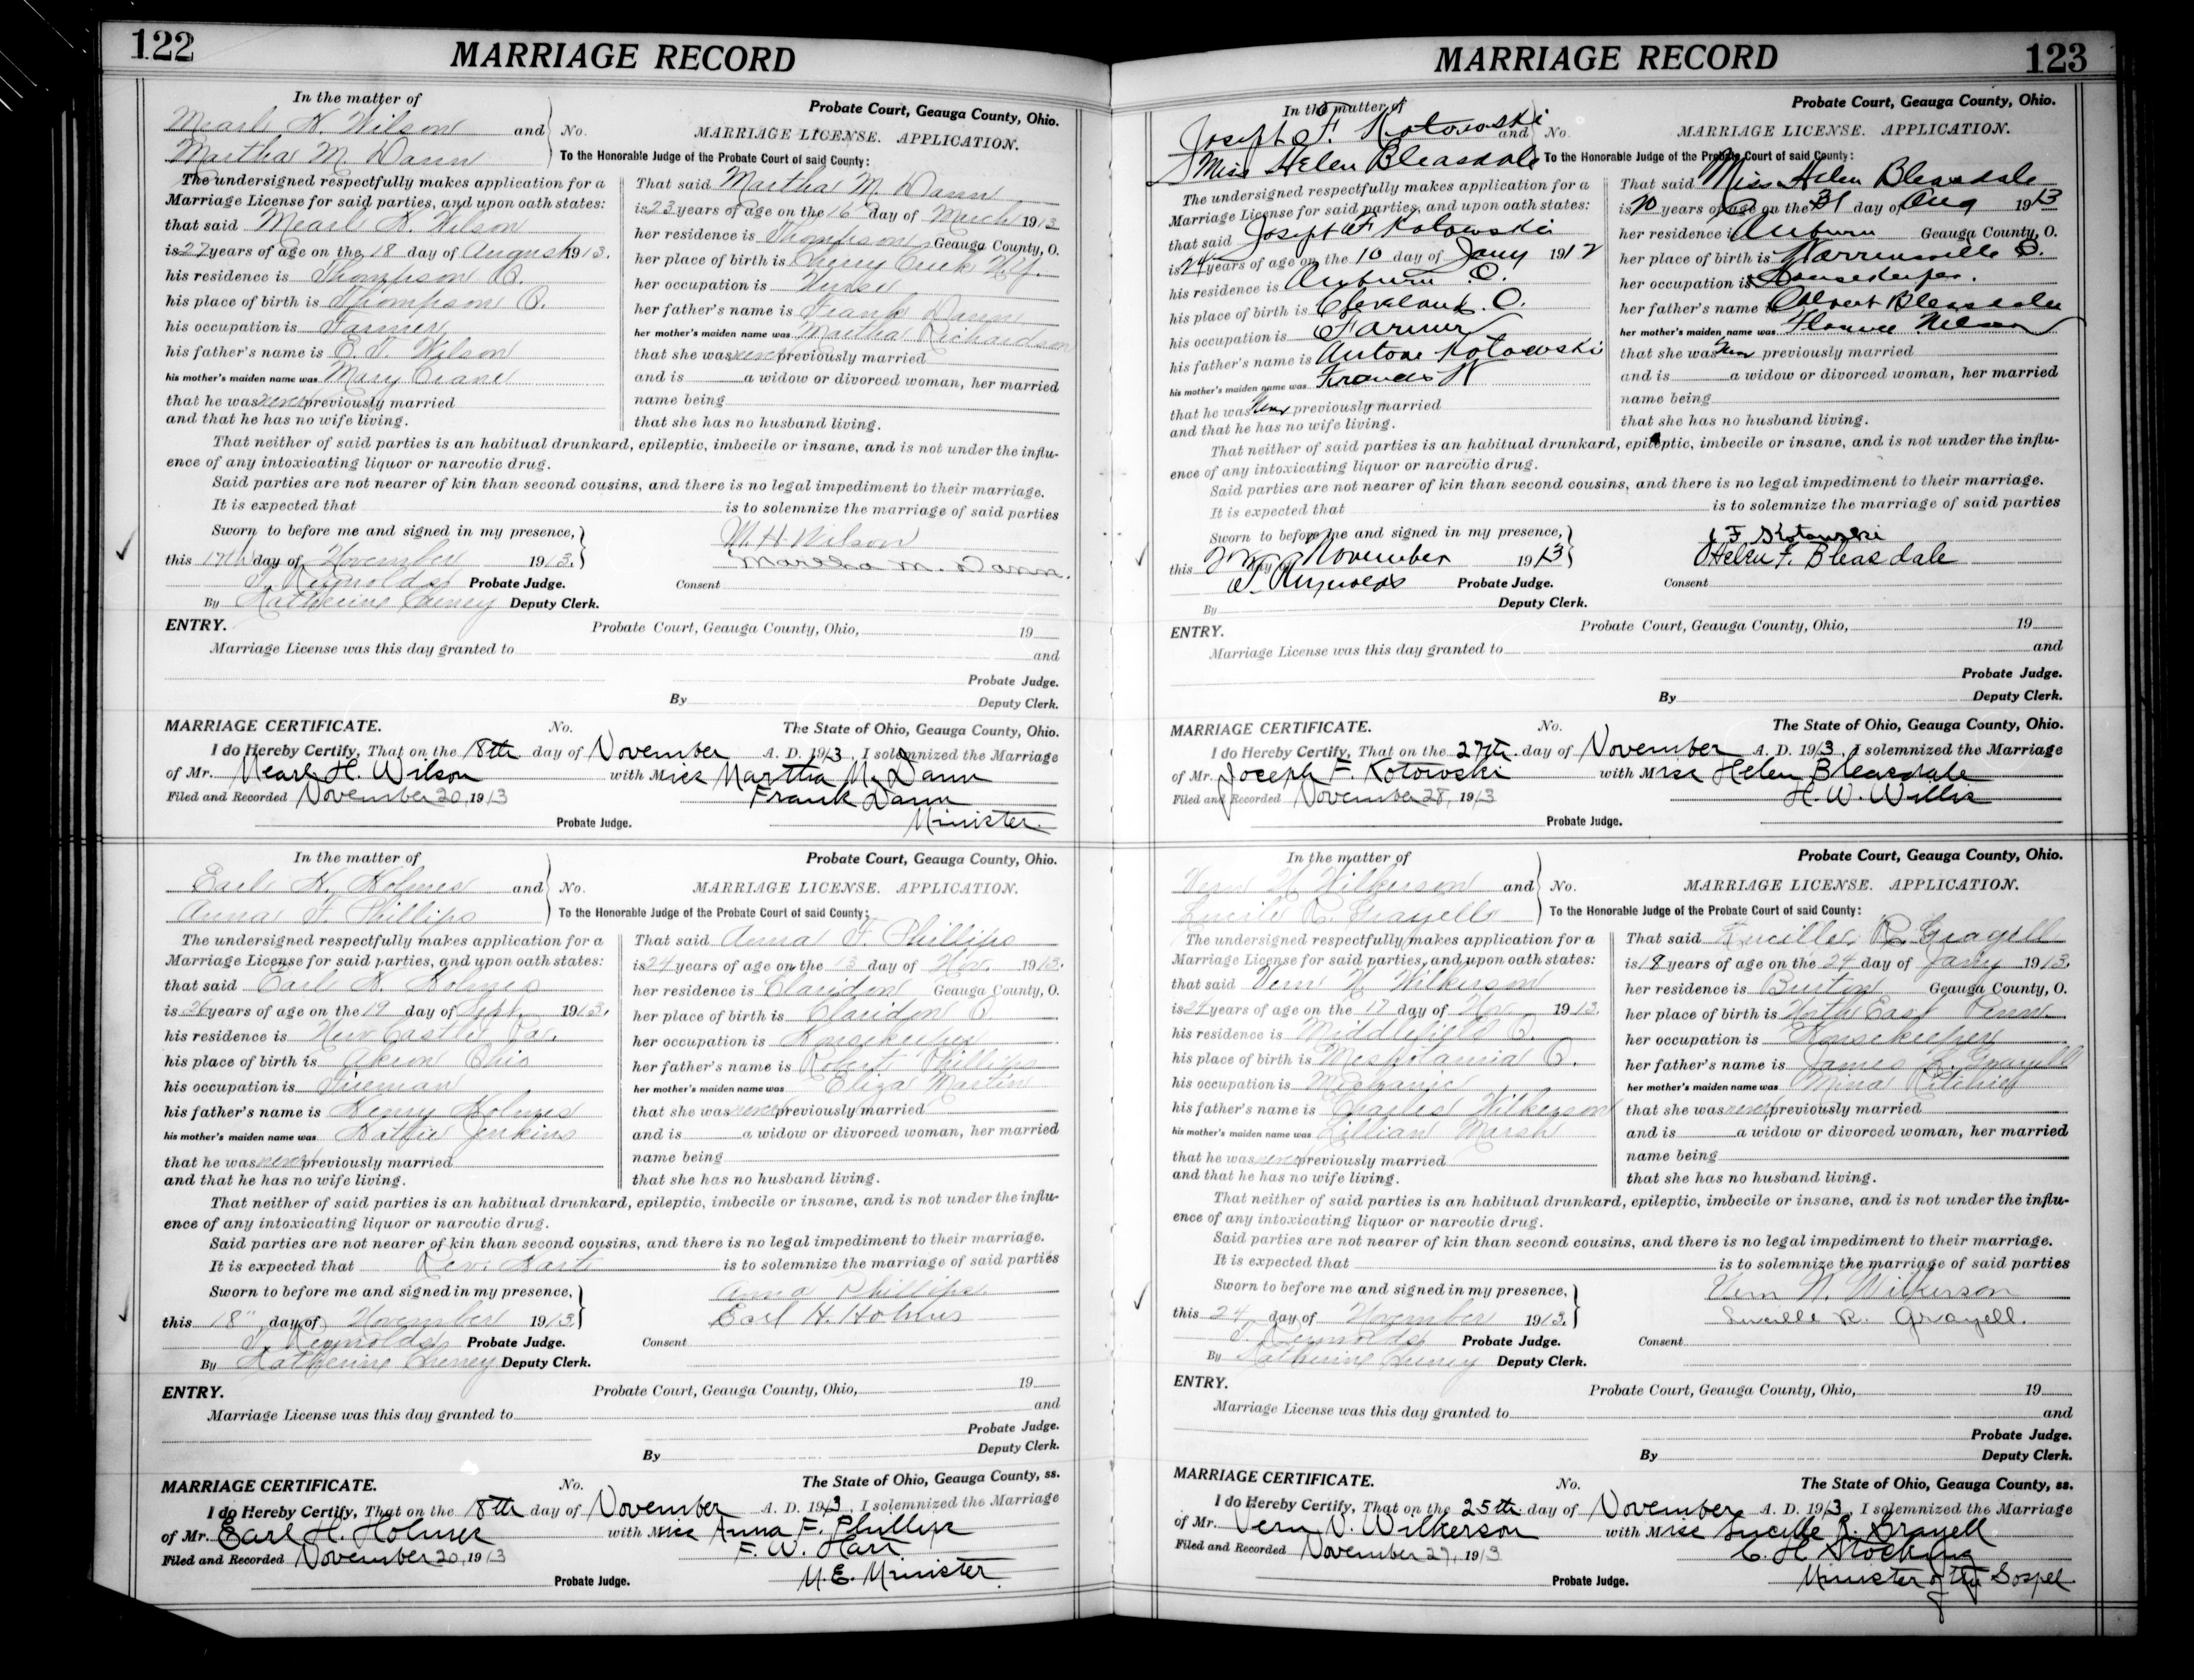 122
MARRIAGE RECORD
In the matter of
Probate Court, Geauga County, Ohio.
Mearl H. Wilson and No.
MARRIAGE LICENSE. APPLICATION.
Martha M. Dann
To the Honorable Judge of the Probate Court of said County:
The undersigned respectfully makes application for a
Marriage License for said parties, and upon oath states:
that said Mearl H. Wilson
is 27 years of age on the 18 day of August 1913.
his residence is Thompson O.
his place of birth is Thompson O.
his occupation is Farmer
his father's name is E. T. Wilson
his mother's maiden name was Mary Crane
that he was never previously married
and that he has no wife living.
That said Martha M. Dann
is 23 years of age on the 16 day of March 1913
her residence is Thompson Geauga County, O.
her place of birth is Cherry Creek N.Y.
her occupation is Nurse
her father's name is Frank Dann
her mother's maiden name was Martha Richardson
that she was never previously married
and is a widow or divorced woman, her married
name being
that she has no husband living.
That neither of said parties is an habitual drunkard, epileptic, imbecile or insane, and is not under the influ-
ence of any intoxicating liquor or narcotic drug.
Said parties are not nearer of kin than second cousins, and there is no legal impediment to their marriage.
It is expected that is to solemnize the marriage of said parties
Sworn to before me and signed in my presence,
M. H. Wilson
this 17th day of November 1913.
Martha M. Dann.
T. Reynolds Probate Judge.
Consent
By Katherine Cheney Deputy Clerk.
ENTRY.
Probate Court, Geauga County, Ohio, 19
Marriage License was this day granted to and
Probate Judge.
By Deputy Clerk.
MARRIAGE CERTIFICATE. No. The State of Ohio, Geauga County, Ohio.
I do Hereby Certify, That on the 18th day of November A. D. 1913, I solemnized the Marriage
of Mr. Mearl H. Wilson with Miss Martha M. Dann
Filed and Recorded November 20, 1913
Frank Dann
Probate Judge.
Minister
In the matter of
Probate Court, Geauga County, Ohio.
Earl H. Holmes and No.
MARRIAGE LICENSE. APPLICATION.
Anna F. Phillips
To the Honorable Judge of the Probate Court of said County:
The undersigned respectfully makes application for a
Marriage License for said parties, and upon oath states:
that said Earl H. Holmes
is 26 years of age on the 19 day of Sept. 1913.
his residence is New Castle Pa.
his place of birth is Akron Ohio
his occupation is Fireman
his father's name is Henry Holmes
his mother's maiden name was Kattie Jenkins
that he was never previously married
and that he has no wife living.
That said Anna F. Phillips
is 24 years of age on the 13 day of Nov. 1913.
her residence is Claridon Geauga County, O.
her place of birth is Claridon O
her occupation is Housekeeper
her father's name is Robert Phillips
her mother's maiden name was Eliza Martin
that she was never previously married
and is a widow or divorced woman, her married
name being
that she has no husband living.
That neither of said parties is an habitual drunkard, epileptic, imbecile or insane, and is not under the influ-
ence of any intoxicating liquor or narcotic drug.
Said parties are not nearer of kin than second cousins, and there is no legal impediment to their marriage.
It is expected that Rev. Hart is to solemnize the marriage of said parties
Sworn to before me and signed in my presence,
Anna Phillips
this 18" day of November 1913.
Earl H. Holmes
T. Reynolds Probate Judge.
Consent
By Katherine Cheney Deputy Clerk.
ENTRY.
Probate Court, Geauga County, Ohio, 19
Marriage License was this day granted to and
Probate Judge.
By Deputy Clerk.
MARRIAGE CERTIFICATE. No. The State of Ohio, Geauga County, ss.
I do Hereby Certify, That on the 18th day of November A. D. 1913, I solemnized the Marriage
of Mr. Earl H. Holmes with Miss Anna F. Phillips
Filed and Recorded November 20, 1913
F. W. Hart
Probate Judge.
M. E. Minister.
MARRIAGE RECORD
123
In the matter of
Probate Court, Geauga County, Ohio.
Joseph F. Kotowski and No.
MARRIAGE LICENSE. APPLICATION.
Miss Helen Bleasdale
To the Honorable Judge of the Probate Court of said County:
The undersigned respectfully makes application for a
Marriage License for said parties, and upon oath states:
that said Joseph F Kotowski
is 24 years of age on the 10 day of Jany 1912
his residence is Auburn O.
his place of birth is Cleveland. O.
his occupation is Farmer
his father's name is Antone Kotowski
his mother's maiden name was Frances
that he was never previously married
and that he has no wife living.
That said Miss Helen Bleasdale
is 20 years of age on the 31 day of Aug 1913
her residence is Auburn Geauga County, O.
her place of birth is Warrensville O.
her occupation is Housekeeper.
her father's name is Albert Bleasdale
her mother's maiden name was Florence Nelson
that she was never previously married
and is a widow or divorced woman, her married
name being
that she has no husband living.
That neither of said parties is an habitual drunkard, epileptic, imbecile or insane, and is not under the influ-
ence of any intoxicating liquor or narcotic drug.
Said parties are not nearer of kin than second cousins, and there is no legal impediment to their marriage.
It is expected that is to solemnize the marriage of said parties
Sworn to before me and signed in my presence,
J F Kotowski
this day of November 1913
Helen F. Bleasdale
T. Reynolds Probate Judge.
Consent
By Deputy Clerk.
ENTRY.
Probate Court, Geauga County, Ohio, 19
Marriage License was this day granted to and
Probate Judge.
By Deputy Clerk.
MARRIAGE CERTIFICATE. No. The State of Ohio, Geauga County, Ohio.
I do Hereby Certify, That on the 27th day of November A. D. 1913, I solemnized the Marriage
of Mr. Joseph F. Kotowski with Miss Helen Bleasdale
Filed and Recorded November 28, 1913
H. W. Willis
Probate Judge.
In the matter of
Probate Court, Geauga County, Ohio.
Vern N. Wilkerson and No.
MARRIAGE LICENSE. APPLICATION.
Lucile R. Grayell
To the Honorable Judge of the Probate Court of said County:
The undersigned respectfully makes application for a
Marriage License for said parties, and upon oath states:
that said Vern N. Wilkerson
is 24 years of age on the 17 day of Nov 1913.
his residence is Middlefield O.
his place of birth is Mesopotamia O.
his occupation is Mechanic
his father's name is Charles Wilkerson
his mother's maiden name was Lillian Marsh
that he was never previously married
and that he has no wife living.
That said Lucille R. Grayell
is 18 years of age on the 24 day of Jany 1913.
her residence is Burton Geauga County, O.
her place of birth is North East Penn.
her occupation is Housekeeper
her father's name is James L. Grayell
her mother's maiden name was Mina Ritchie
that she was never previously married
and is a widow or divorced woman, her married
name being
that she has no husband living.
That neither of said parties is an habitual drunkard, epileptic, imbecile or insane, and is not under the influ-
ence of any intoxicating liquor or narcotic drug.
Said parties are not nearer of kin than second cousins, and there is no legal impediment to their marriage.
It is expected that is to solemnize the marriage of said parties
Sworn to before me and signed in my presence,
Vern N. Wilkerson
this 24 day of November 1913.
Lucille R. Grayell.
T. Reynolds Probate Judge.
Consent
By Katherine Cheney Deputy Clerk.
ENTRY.
Probate Court, Geauga County, Ohio, 19
Marriage License was this day granted to and
Probate Judge.
By Deputy Clerk.
MARRIAGE CERTIFICATE. No. The State of Ohio, Geauga County, ss.
I do Hereby Certify, That on the 25th day of November A. D. 1913, I solemnized the Marriage
of Mr. Vern N. Wilkerson with Miss Lucille R. Grayell
Filed and Recorded November 27, 1913
C. H. Stocking
Probate Judge.
Minister of the Gospel